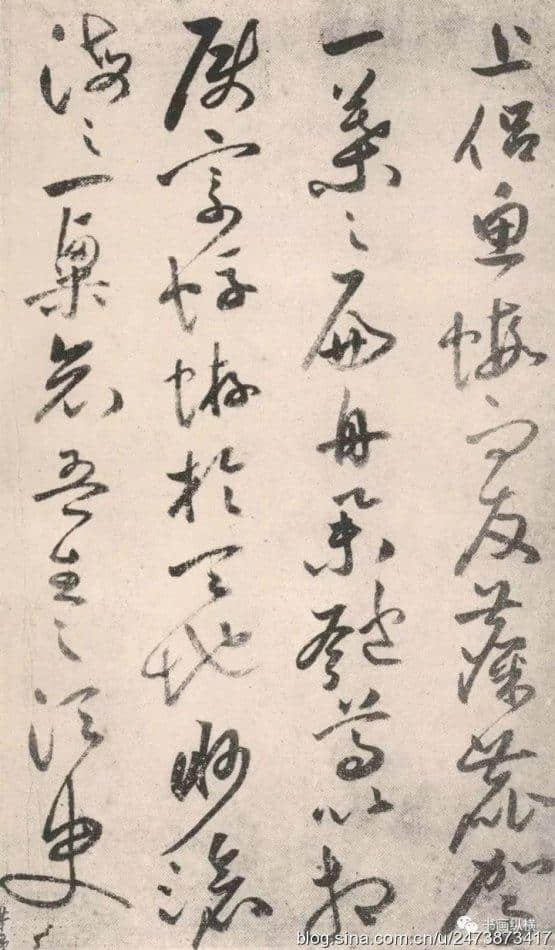 上侶魚蝦而友麋鹿駕
一葉之扁舟舉匏尊以相
属寄蜉蝣於天地眇滄
海之一粟哀吾生之須臾
书画纵横
blog.sina.com.cn/u/2473873417